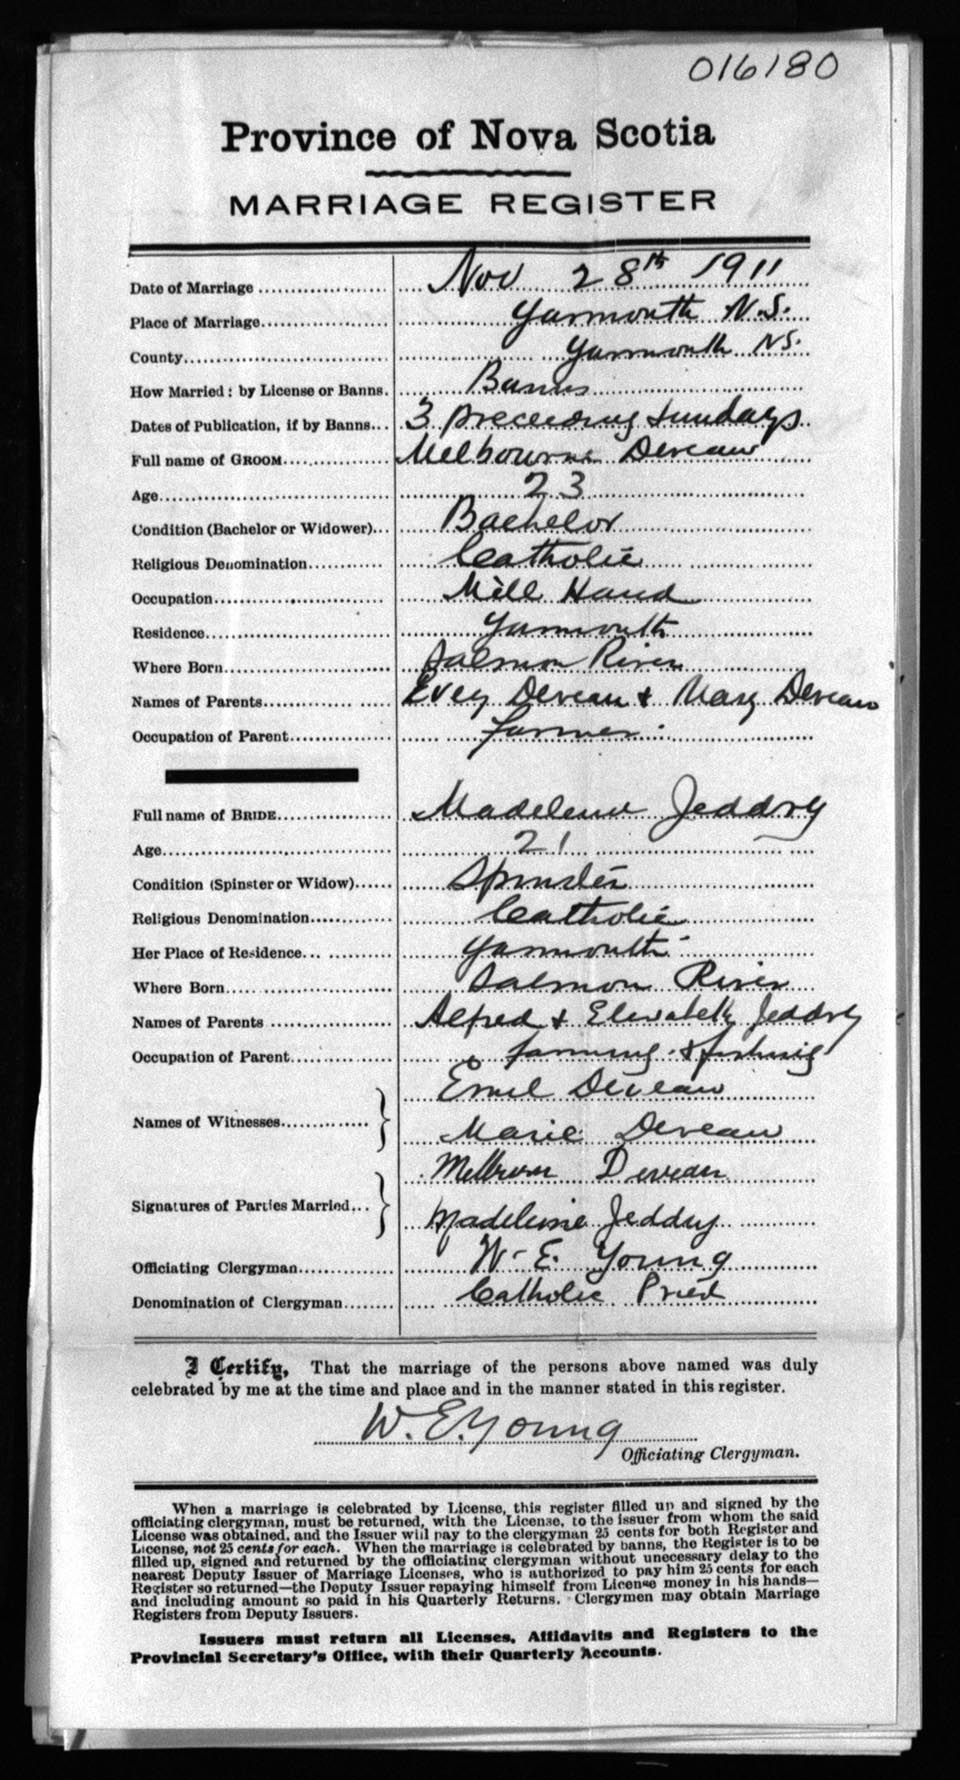 016180
Province of Nova Scotia
MARRIAGE REGISTER
Date of Marriage Nov 28th 1911
Place of Marriage Yarmouth N.S.
County Yarmouth NS.
How Married: by License or Banns. Banns
Dates of Publication, if by Banns 3 preceeding Sundays
Full name of GROOM Melbourne Deveau
Age 23
Condition (Bachelor or Widower) Bachelor
Religious Denomination Catholic
Occupation Mill Hand
Residence Yarmouth
Where Born Salmon River
Names of Parents Deveau & Mary Deveau
Occupation of Parent farmer
Full name of BRIDE Jeddry
Age 21
Condition (Spinster or Widow) Spinster
Religious Denomination Catholic
Her Place of Residence Yarmouth
Where Born Salmon River
Names of Parents Alfred & Jeddry
Occupation of Parent farming & fishing
Names of Witnesses Emil Deveau
Marie Deveau
Signatures of Parties Married Deveau
Madeleine Jeddry
Officiating Clergyman W-E. Young
Denomination of Clergyman Catholic Priest
I Certify, That the marriage of the persons above named was duly
celebrated by me at the time and place and in the manner stated in this register.
W. E. Young
Officiating Clergyman.
When a marriage is celebrated by License, this register filled up and signed by the
officiating clergyman, must be returned, with the License, to the issuer from whom the said
License was obtained, and the Issuer will pay to the clergyman 25 cents for both Register and
License, not 25 cents for each. When the marriage is celebrated by banns, the Register is to be
filled up, signed and returned by the officiating clergyman without unecessary delay to the
nearest Deputy Issuer of Marriage Licenses, who is authorized to pay him 25 cents for each
Register so returned—the Deputy Issuer repaying himself from License money in his hands—
and including amount so paid in his Quarterly Returns. Clergymen may obtain Marriage
Registers from Deputy Issuers.
Issuers must return all Licenses, Affidavits and Registers to the
Provincial Secretary's Office, with their Quarterly Accounts.